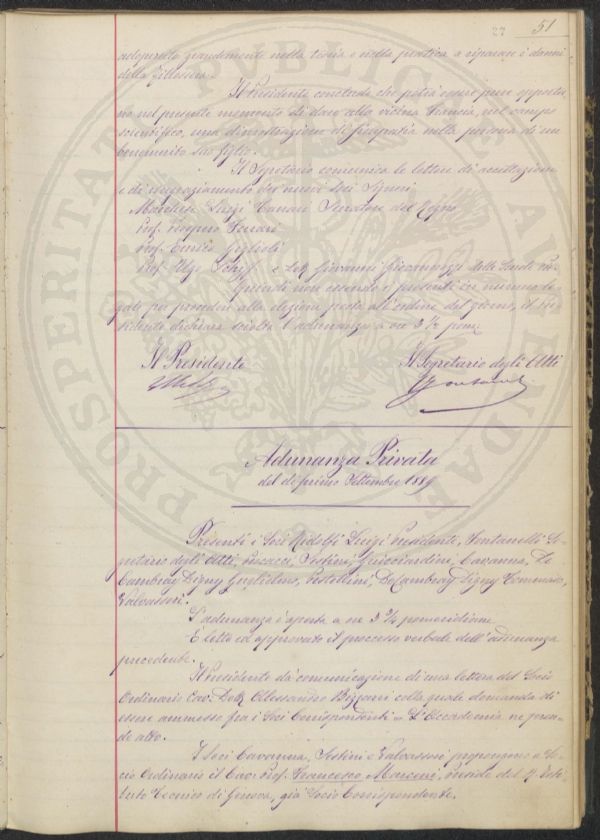 27 51
adoperato grandemente nella teoria e nella pratica a riparare i danni
della fillossera.
Il Presidente conclude che potrà essere pure opportu-
no nel presente momento di dare alla vicina Francia, nel campo
scientifico, una dimostrazione di simpatia nella persona di un
benemerito suo figlio.
Il Segretario comunica le lettere di accettazione
e di ringraziamento dei nuovi Soci Signori
Marchese Luigi Senatore del Regno
Prof. Prospero Ferrari
Prof. Enrico Giglioli
Prof. Ugo Schiff e Dott. Giovanni
Quindi non essendo i presenti in numero le-
gale per procedere alla elezione posta all'ordine del giorno, il Pre-
sidente dichiara sciolta l'adunanza a ore 3 ½ pom.
Il Presidente Il Segretario degli Atti
PROSPERITATI PUBLICAE AUGENDAE
Adunanza Privata
del dì primo Settembre 1889
Presenti i Soci Ridolfi Luigi Presidente, Fontanelli Se-
gretario degli Atti, Pucacci, Sestini, Guicciardini, Cavanna, De
Cambray Digny Guglielmo, Pestellini, De Cambray Digny Tommaso,
Valvassori.
L'adunanza è aperta a ore 3 ¾ pomeridiane.
È letto ed approvato il processo verbale dell'adunanza
precedente.
Il Presidente dà comunicazione di una lettera del Socio
Ordinario Cav. Dott. Alessandro Bizzarri colla quale domanda di
essere ammesso fra i Soci Corrispondenti = L'Accademia ne pren-
de atto.
I Soci Cavanna, Sestini e Valvassori propongono a So-
cio Ordinario il Cav. Prof. Francesco Marconi, Preside del R. Isti-
tuto Tecnico di Genova, già Socio Corrispondente.